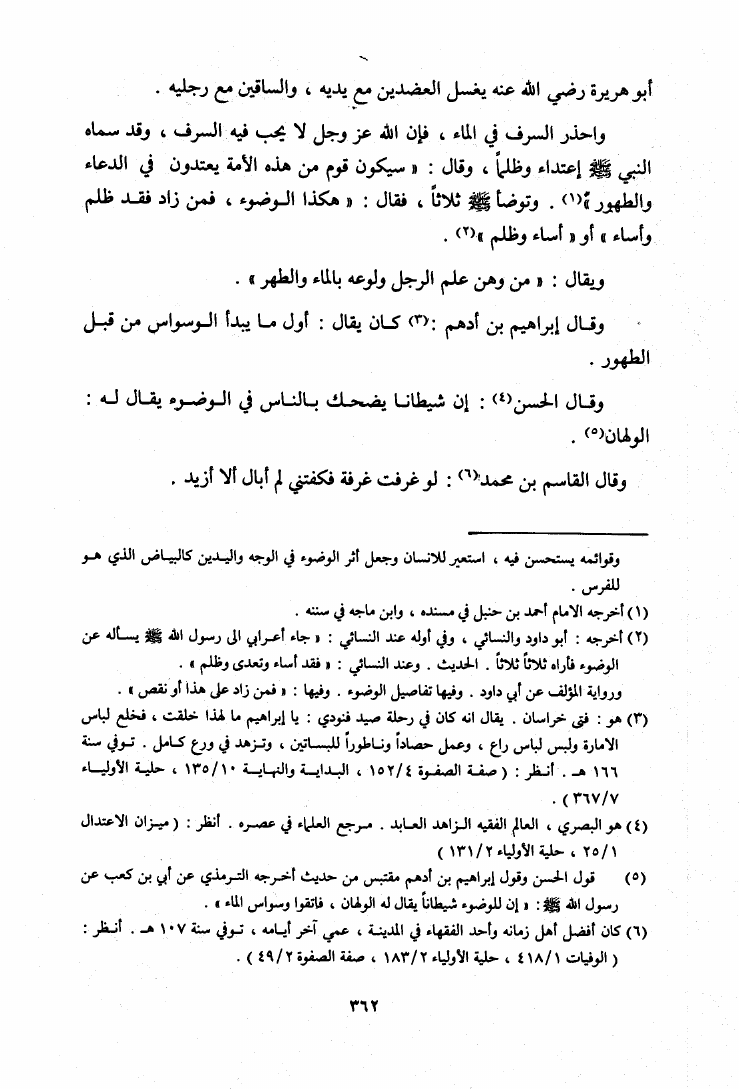 أبو هريرة رضي الله عنه يغسل العضدين مع يديه ، والساقين مع رجليه .
واحذر السرف في الماء ، فإن الله عز وجل لا يحب فيه السرف ، وقد سماه
النبي ﷺ إعتداء وظلماً ، وقال : « سيكون قوم من هذه الأمة يعتدون في الدعاء
والطهور »(١) . وتوضأ ﷺ ثلاثاً ، فقال : « هكذا الـوضوء ، فمن زاد فقـد ظلم
وأساء » أو « أساء وظلم »(٢) .
ويقال : « من وهن علم الرجل ولوعه بالماء والطهر » .
وقـال إبراهيم بن أدهم (٣): كـان يقال : أول مـا يبدأ الـوسواس من قبـل
الطهور .
وقـال الحسن(٤) : إن شيطانـا يضحـك بـالنـاس في الـوضـوء يقـال لـه :
الولهان(٥) .
وقال القاسم بن محمد(٦) : لو غرفت غرفة فكفتني لم أبال ألا أزيد .
وقوائمه يستحسن فيه ، استعير للانسان وجعل أثر الوضوء في الوجه واليـدين كالبيـاض الذي هـو
للفرس .
(١) أخرجه الامام أحمد بن حنبل في مسنده ، وابن ماجه في سننه .
(٢) أخرجه : أبو داود والنسائي ، وفي أوله عند النسائي : « جاء أعـرابي الى رسول الله ﷺ يسـأله عن
الوضوء فأراه ثلاثاً ثلاثاً . الحديث . وعند النسائي : « فقد أساء وتعدى وظلم » .
ورواية المؤلف عن أبي داود . وفيها تفاصيل الوضوء . وفيها : « فمن زاد على هذا أو نقص » .
(٣) هو : فتى خراسان . يقال انه كان في رحلة صيد فنودي : يا إبراهيم ما لهذا خلقت ، فخلع لباس
الامارة ولبس لباس راع ، وعمل حصاداً ونـاطوراً للبسـاتين ، وتـزهد في ورع كـامل . تـوفي سنة
١٦٦ هـ . أنـظر : ( صفـة الصفـوة ١٥٢/٤ ، البـدايـة والنهـايـة ١٣٥/١٠ ، حليـة الأوليـاء
٣٦٧/٧ ) .
(٤) هو البصري ، العالم الفقيه الـزاهد العـابد . مـرجع العلماء في عصـره . أنظر : ( ميـزان الاعتدال
٢٥/١ ، حلية الأولياء ١٣١/٢ )
(٥) قول الحسن وقول إبراهيم بن أدهم مقتبس من حديث أخـرجه التـرمذي عن أبي بن كعب عن
رسول الله ﷺ : « إن للوضوء شيطاناً يقال له الولهان ، فاتقوا وسواس الماء » .
(٦) كان أفضل أهل زمانه وأحد الفقهاء في المدينـة ، عمي آخر أيـامه ، تـوفي سنة ١٠٧ هـ . أنـظر :
( الوفيات ٤١٨/١ ، حلية الأولياء ١٨٣/٢ ، صفة الصفوة ٤٩/٢ ) .
٣٦٢